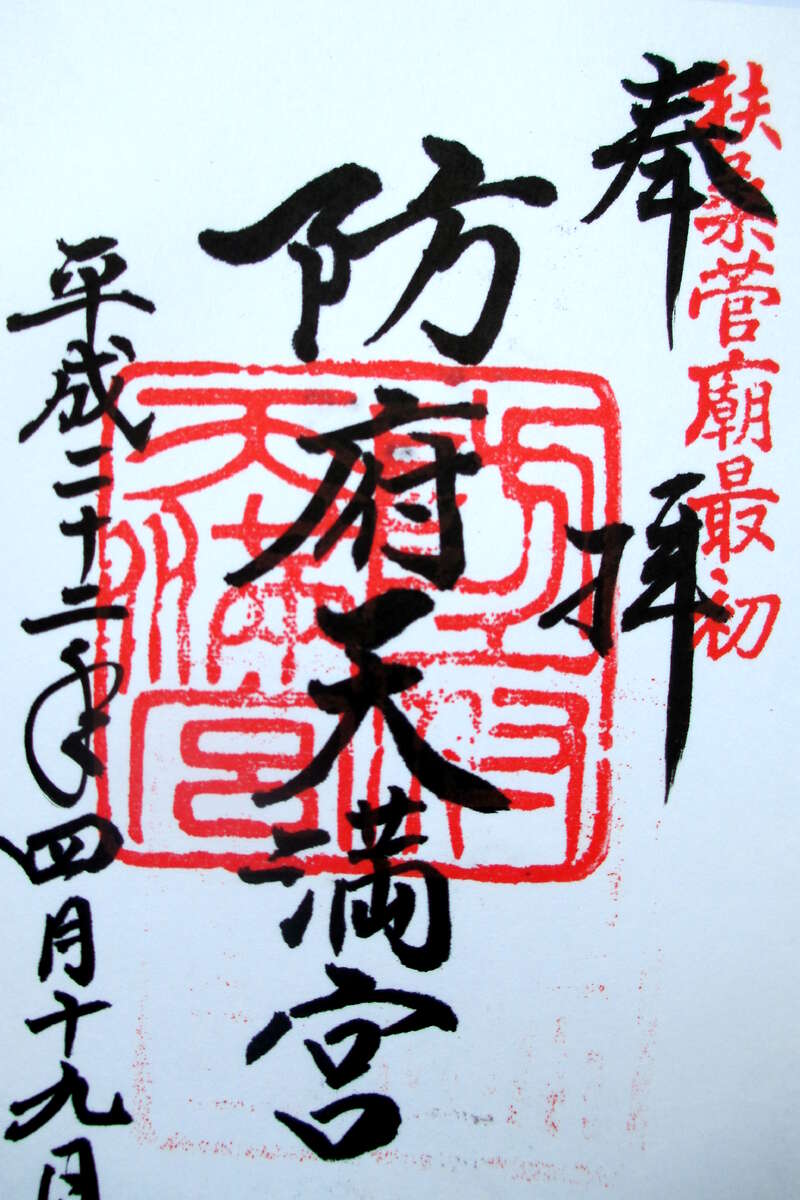 扶桑菅廟最初
奉拝
防府天満宮
防府
天満宮
平成二十二年四月十九日